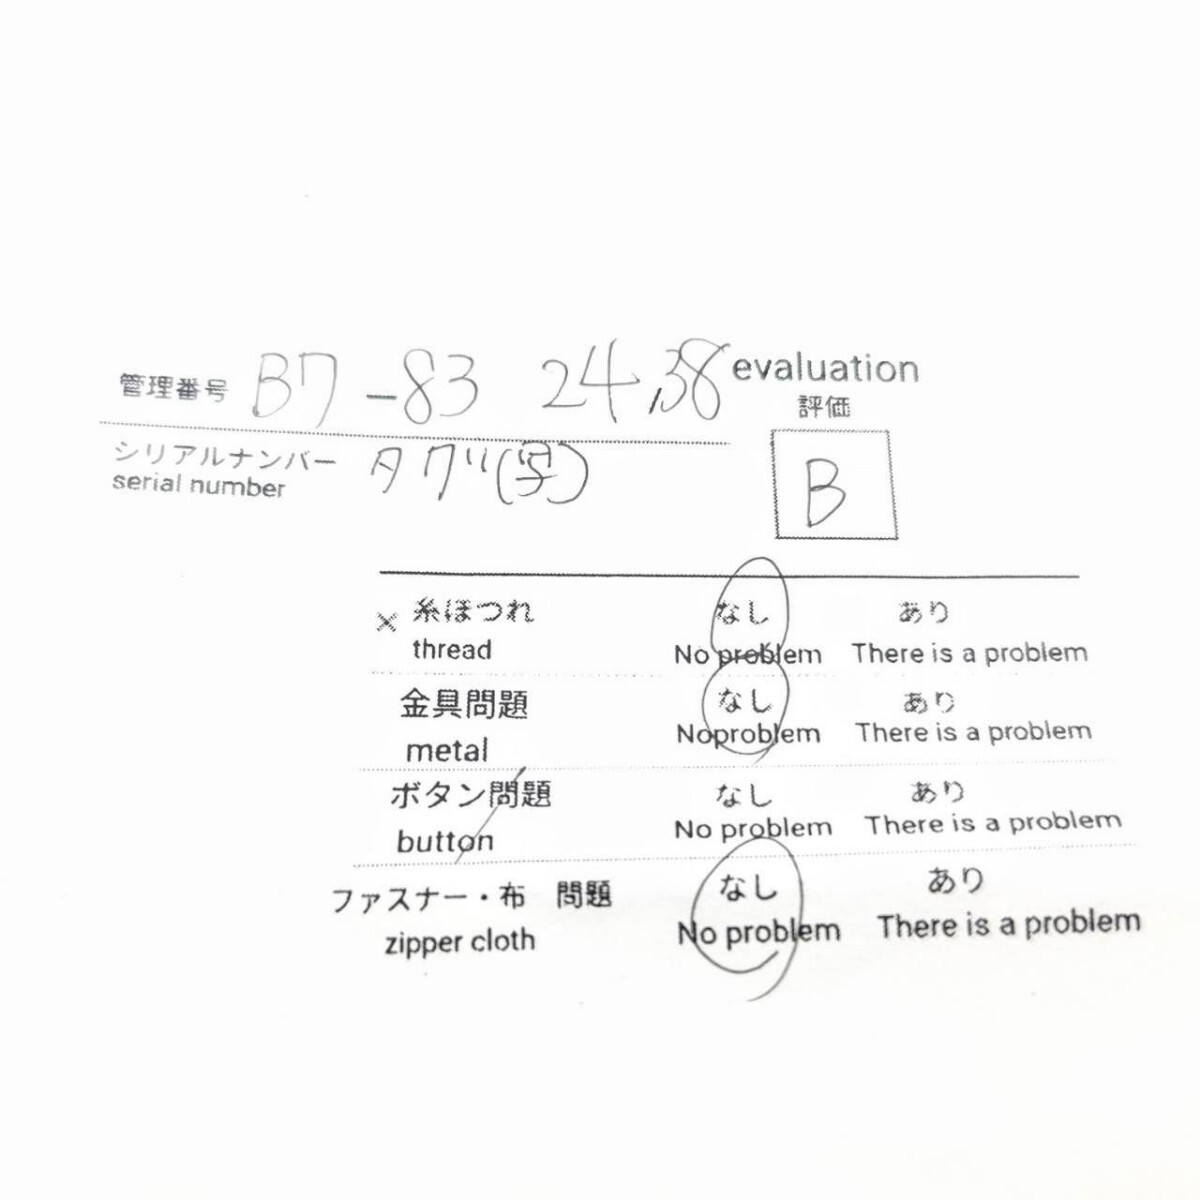 管理番号 B7-83 24,38 evaluation
評価
シリアルナンバー タグ(写)
serial number
B
× 糸ほつれ なし あり
thread No problem There is a problem
金具問題 なし あり
metal Noproblem There is a problem
ボタン問題 なし あり
button No problem There is a problem
ファスナー・布 問題 なし あり
zipper cloth No problem There is a problem